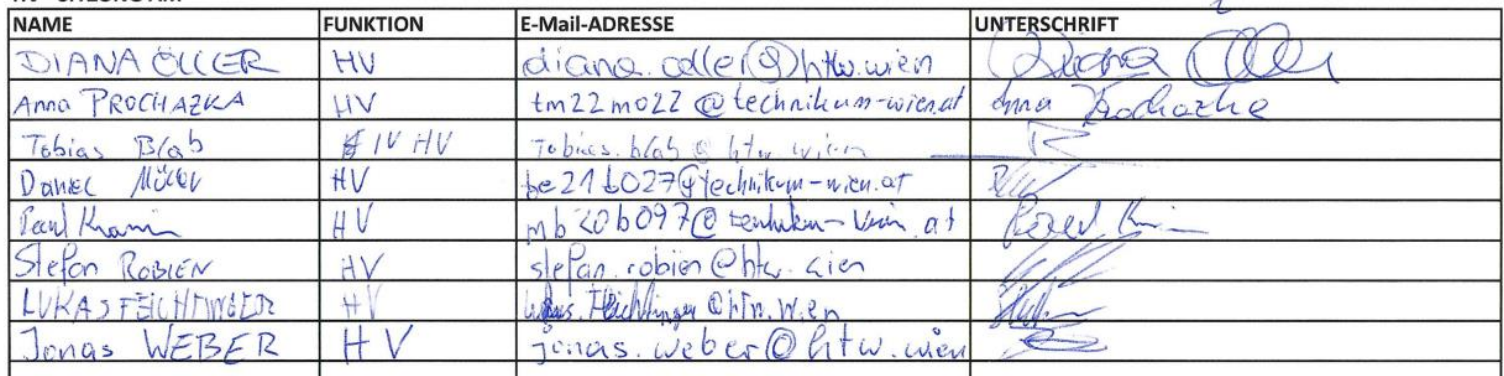 NAME FUNKTION E-Mail-ADRESSE UNTERSCHRIFT
DIANA ÖLLER HV diana.oeller@htw.wien Diana
Anna PROCHAZKA HV tm22m022@technikum-wien.at Anna Prochazka
Tobias Blab IV HV Tobias.blab@htw.wien
Daniel Müller HV be21b027@technikum-wien.at
Paul HV mb20b097@ at Paul
Stefan ROBIEN HV stefan.robien@htw.wien
LUKAS FEICHTINGER HV lukas.feichtinger@htw.wien
Jonas WEBER HV jonas.weber@htw.wien